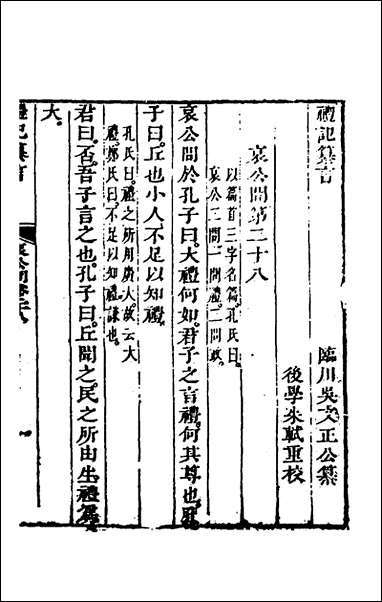 禮記纂言
臨川吳文正公纂
後學朱軾重校
哀公問第二十八
以篇首三字名篇。孔氏曰。
哀公二問一問禮。二問政。
哀公問於孔子曰。大禮何如。君子之言禮。何其尊也。孔
子曰。丘也小人。不足以知禮。
孔氏曰禮之所用廣大。故云大
禮。鄭氏曰不足以知禮謙也。
君曰。否。吾子言之也。孔子曰。丘聞之。民之所由生。禮爲
大。
禮記纂言